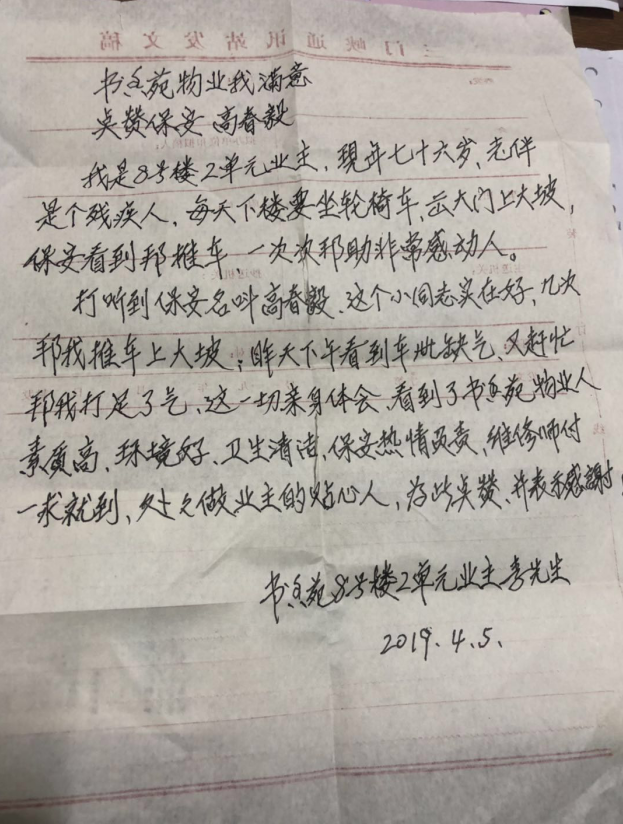 三门峡通讯站发文稿
书香苑物业我满意
点赞保安 高春毅
我是8号楼2单元业主，现年七十六岁、老伴
是个残疾人，每天下楼要坐轮椅车，去大门上大坡，
保安看到帮推车，一次次帮助非常感动人。
打听到保安名叫高春毅、这个小同志实在好，几次
帮我推车上大坡；昨天下午看到车肚缺气、又赶忙
帮我打足了气、这一切亲身体会、看到了书香苑物业人
素质高、环境好、卫生清洁、保安热情负责，维修师付
一求就到，处处做业主的贴心人，为此点赞、并表示感謝！
书香苑8号楼2单元业主李先生
2019.4.5.